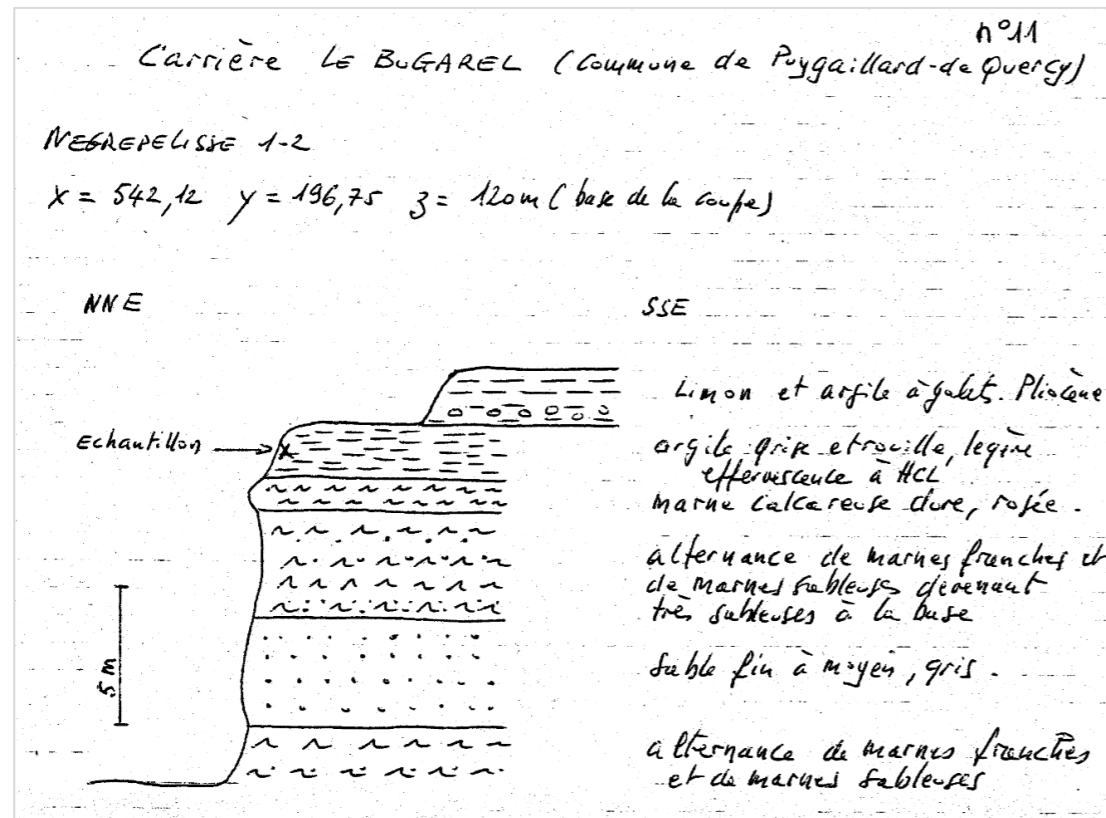 n°11
Carrière LE BUGAREL (Commune de Puygaillard-de Quercy)
NEGREPELISSE 1-2
x = 542,12 y = 196,75 z = 120m (base de la coupe)
NNE SSE
Limon et argile à galets. Pliocène
Echantillon
argile grise et rouille, legère
effervescence à HCL
marne calcareuse dure, rosée.
alternance de marnes franches et
de marnes sableuses devenant
très sableuses à la base
5 m
Sable fin à moyen, gris.
alternance de marnes franches
et de marnes sableuses